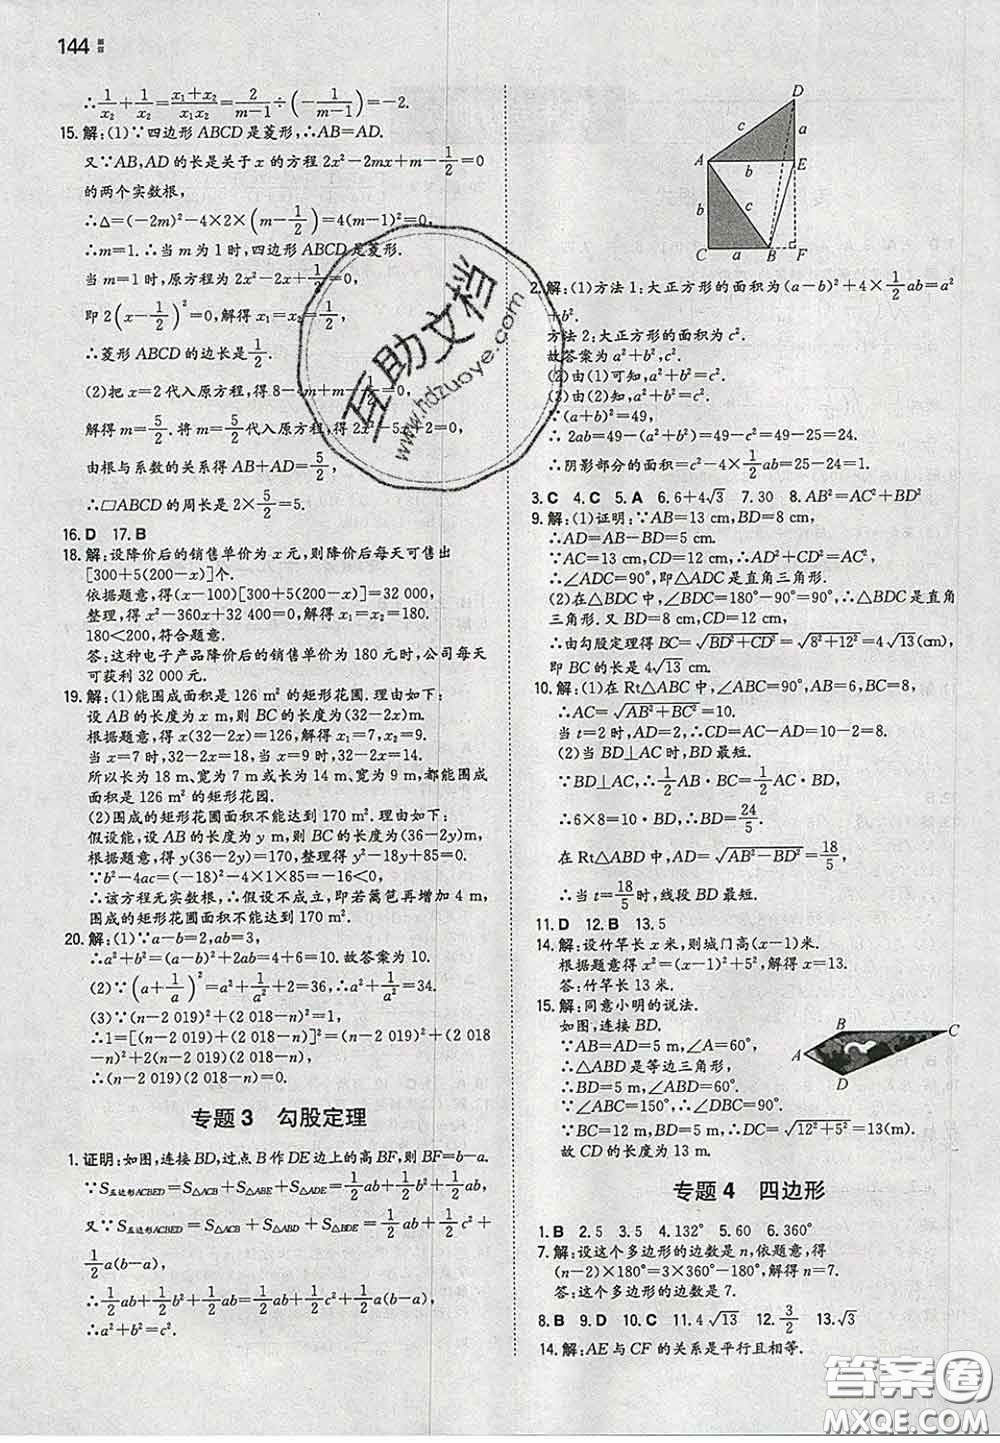 144
∴1/x₂+1/x₁=(x₁+x₂)/(x₁x₂)=2/(m-1)÷(-1/(m-1))=-2.
15.解:(1)∵四边形ABCD是菱形,∴AB=AD.
又∵AB,AD的长是关于x的方程2x²-2mx+m-1/2=0
的两个实数根,
∴Δ=(-2m)²-4×2×(m-1/2)=4(m-1)²=0,
∴m=1.∴当m为1时,四边形ABCD是菱形.
当m=1时,原方程为2x²-2x+1/2=0,
即2(x-1/2)²=0,解得x₁=x₂=1/2,
∴菱形ABCD的边长是1/2.
(2)把x=2代入原方程,得8-4m+m-1/2=0,
解得m=5/2.将m=5/2代入原方程,得2x²-5x+2=0,
由根与系数的关系得AB+AD=5/2,
∴□ABCD的周长是2×5/2=5.
16.D 17.B
18.解:设降价后的销售单价为x元,则降价后每天可售出
[300+5(200-x)]个.
依据题意,得(x-100)[300+5(200-x)]=32 000,
整理,得x²-360x+32 400=0,解得x₁=x₂=180.
180<200,符合题意.
答:这种电子产品降价后的销售单价为180元时,公司每天
可获利32 000元.
19.解:(1)能围成面积是126 m²的矩形花圃.理由如下:
设AB的长度为x m,则BC的长度为(32-2x)m.
根据题意,得x(32-2x)=126,解得x₁=7,x₂=9.
当x=7时,32-2x=18,当x=9时,32-2x=14.
所以长为18 m、宽为7 m或长为14 m、宽为9 m,都能围成
面积是126 m²的矩形花园.
(2)围成的矩形花圃面积不能达到170 m².理由如下:
假设能,设AB的长度为y m,则BC的长度为(36-2y)m.
根据题意,得y(36-2y)=170,整理得y²-18y+85=0.
∵b²-4ac=(-18)²-4×1×85=-16<0,
∴该方程无实数根,∴假设不成立,即若篱笆再增加4 m,
围成的矩形花圃面积不能达到170 m².
20.解:(1)∵a-b=2,ab=3,
∴a²+b²=(a-b)²+2ab=4+6=10.故答案为10.
(2)∵(a+1/a)²=a²+1/a²+2=36,∴a²+1/a²=34.
(3)∵(n-2 019)²+(2 018-n)²=1,
∴1=[(n-2 019)+(2 018-n)]²=(n-2 019)²+(2 018
-n)²+2(n-2 019)(2 018-n)=1+2(n-2 019)(2 018-n),
∴(n-2 019)(2 018-n)=0.
专题3 勾股定理
1.证明:如图,连接BD,过点B作DE边上的高BF,则BF=b-a.
∵S五边形ACBED=S△ACB+S△ABE+S△ADE=1/2ab+1/2b²+1/2ab,
又∵S五边形ACBED=S△ACB+S△ABD+S△BDE=1/2ab+1/2c²+
1/2a(b-a),
∴1/2ab+1/2b²+1/2ab=1/2ab+1/2c²+1/2a(b-a),
∴a²+b²=c².
D
c a
A b E
b c
C a B F
2.解:(1)方法1:大正方形的面积为(a-b)²+4×1/2ab=a²
+b².
方法2:大正方形的面积为c².
故答案为a²+b²,c².
(2)由(1)可知,a²+b²=c².
(3)由(2)知,a²+b²=c²=25.
∵(a+b)²=49,
∴2ab=49-(a²+b²)=49-25=24.
∴阴影部分的面积=c²-4×1/2ab=25-24=1.
3.C 4.C 5.A 6.6+4√3 7.30 8.AB²=AC²+BD²
9.解:(1)证明:∵AB=13 cm,BD=8 cm,
∴AD=AB-BD=5 cm.
∵AC=13 cm,CD=12 cm,∴AD²+CD²=AC²,
∴∠ADC=90°,即△ADC是直角三角形.
(2)在△BDC中,∠BDC=180°-90°=90°,∴△BDC是直角
三角形.又BD=8 cm,CD=12 cm,
∴由勾股定理得BC=√(BD²+CD²)=√(8²+12²)=4√13(cm),
即BC的长是4√13 cm.
10.解:(1)在Rt△ABC中,∠ABC=90°,AB=6,BC=8,
∴AC=√(AB²+BC²)=10.
当t=2时,AD=2,∴CD=AC-AD=10-2=8.
(2)当BD⊥AC时,BD最短.
∵BD⊥AC,∴1/2AB·BC=1/2AC·BD,
∴6×8=10·BD,∴BD=24/5.
在Rt△ABD中,AD=√(AB²-BD²)=18/5,
∴当t=18/5时,线段BD最短.
11.D 12.B 13.5
14.解:设竹竿长x米,则城门高(x-1)米.
根据题意得x²=(x-1)²+5²,解得x=13.
答:竹竿长13米.
15.解:同意小明的说法.
如图,连接BD.
∵AB=AD=5 m,∠A=60°,
∴△ABD是等边三角形,
∴BD=5 m,∠ABD=60°.
∵∠ABC=150°,∴∠DBC=90°.
∵BC=12 m,BD=5 m,∴DC=√(12²+5²)=13(m).
故CD的长度为13 m.
B C
A
D
专题4 四边形
1.B 2.5 3.5 4.132° 5.60 6.360°
7.解:设这个多边形的边数是n,依题意,得
(n-2)×180°=3×360°-180°,解得n=7.
答:这个多边形的边数是7.
8.B 9.D 10.C 11.4√13 12.3/2 13.√3
14.解:AE与CF的关系是平行且相等.
互助文档
www.hdzuoye.com
答案圈
MXQE.COM